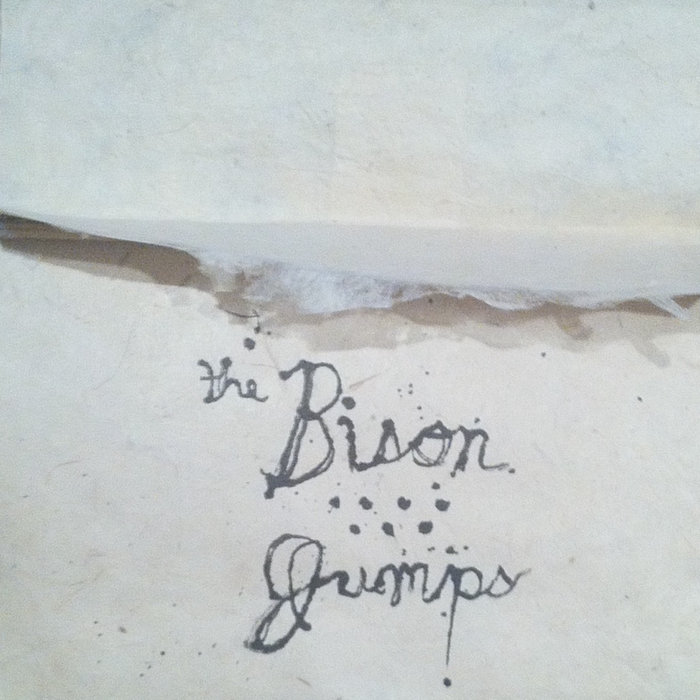 the Bison
Jumps